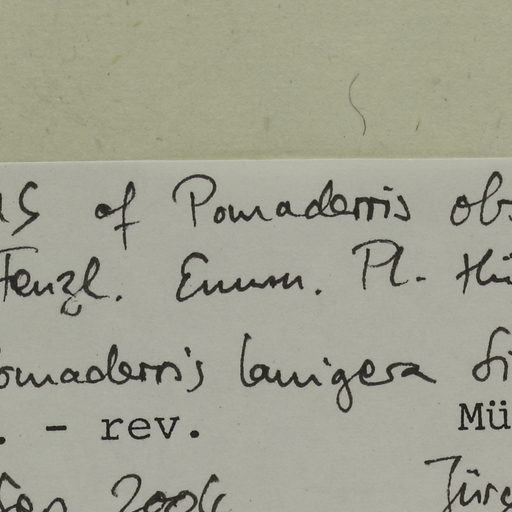 of Pomaderris obs
Fenzl. Enum. Pl. Hü
Pomaderris lanigera Si
. - rev. Mü
Sep 2004 Jürg